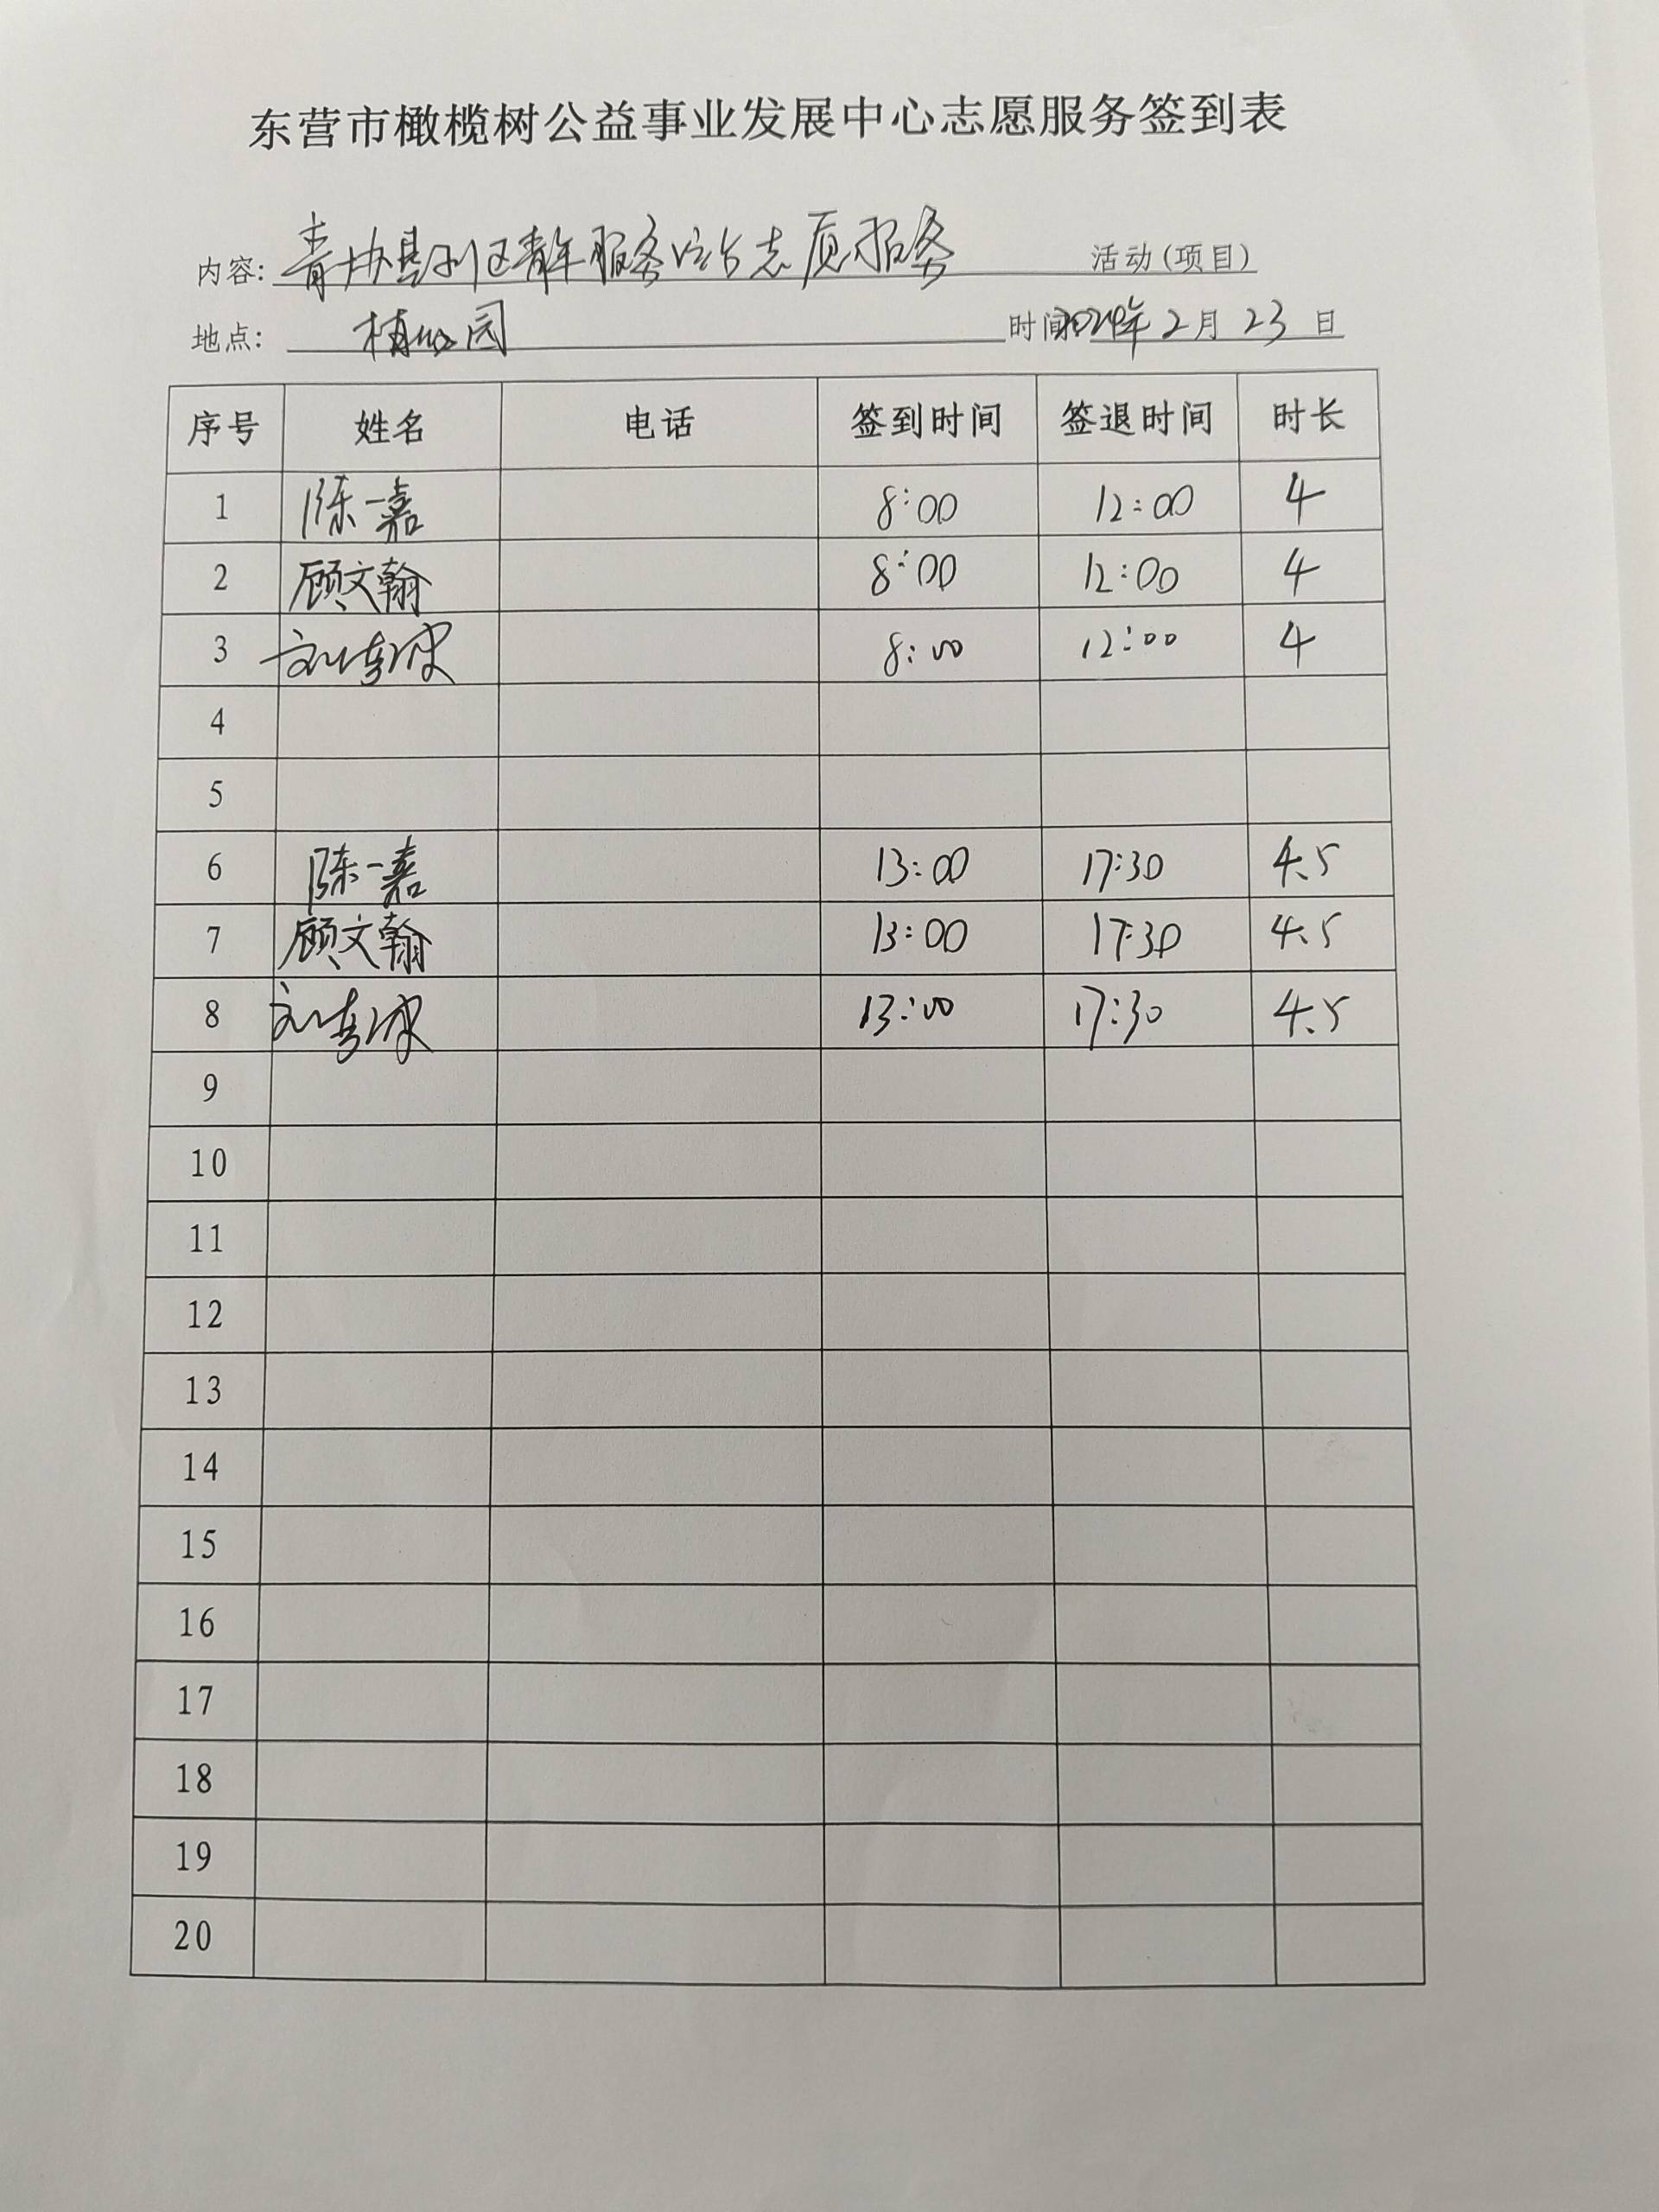 东营市橄榄树公益事业发展中心志愿服务签到表
内容: 青协垦利区青年服务驿站志愿服务 活动(项目)
地点: 植物园 时间2024年 2 月 23 日
序号 姓名 电话 签到时间 签退时间 时长
1 陈一嘉 8:00 12:00 4
2 顾文翰 8:00 12:00 4
3 8:00 12:00 4
4
5
6 陈一嘉 13:00 17:30 4.5
7 顾文翰 13:00 17:30 4.5
8 13:00 17:30 4.5
9
10
11
12
13
14
15
16
17
18
19
20